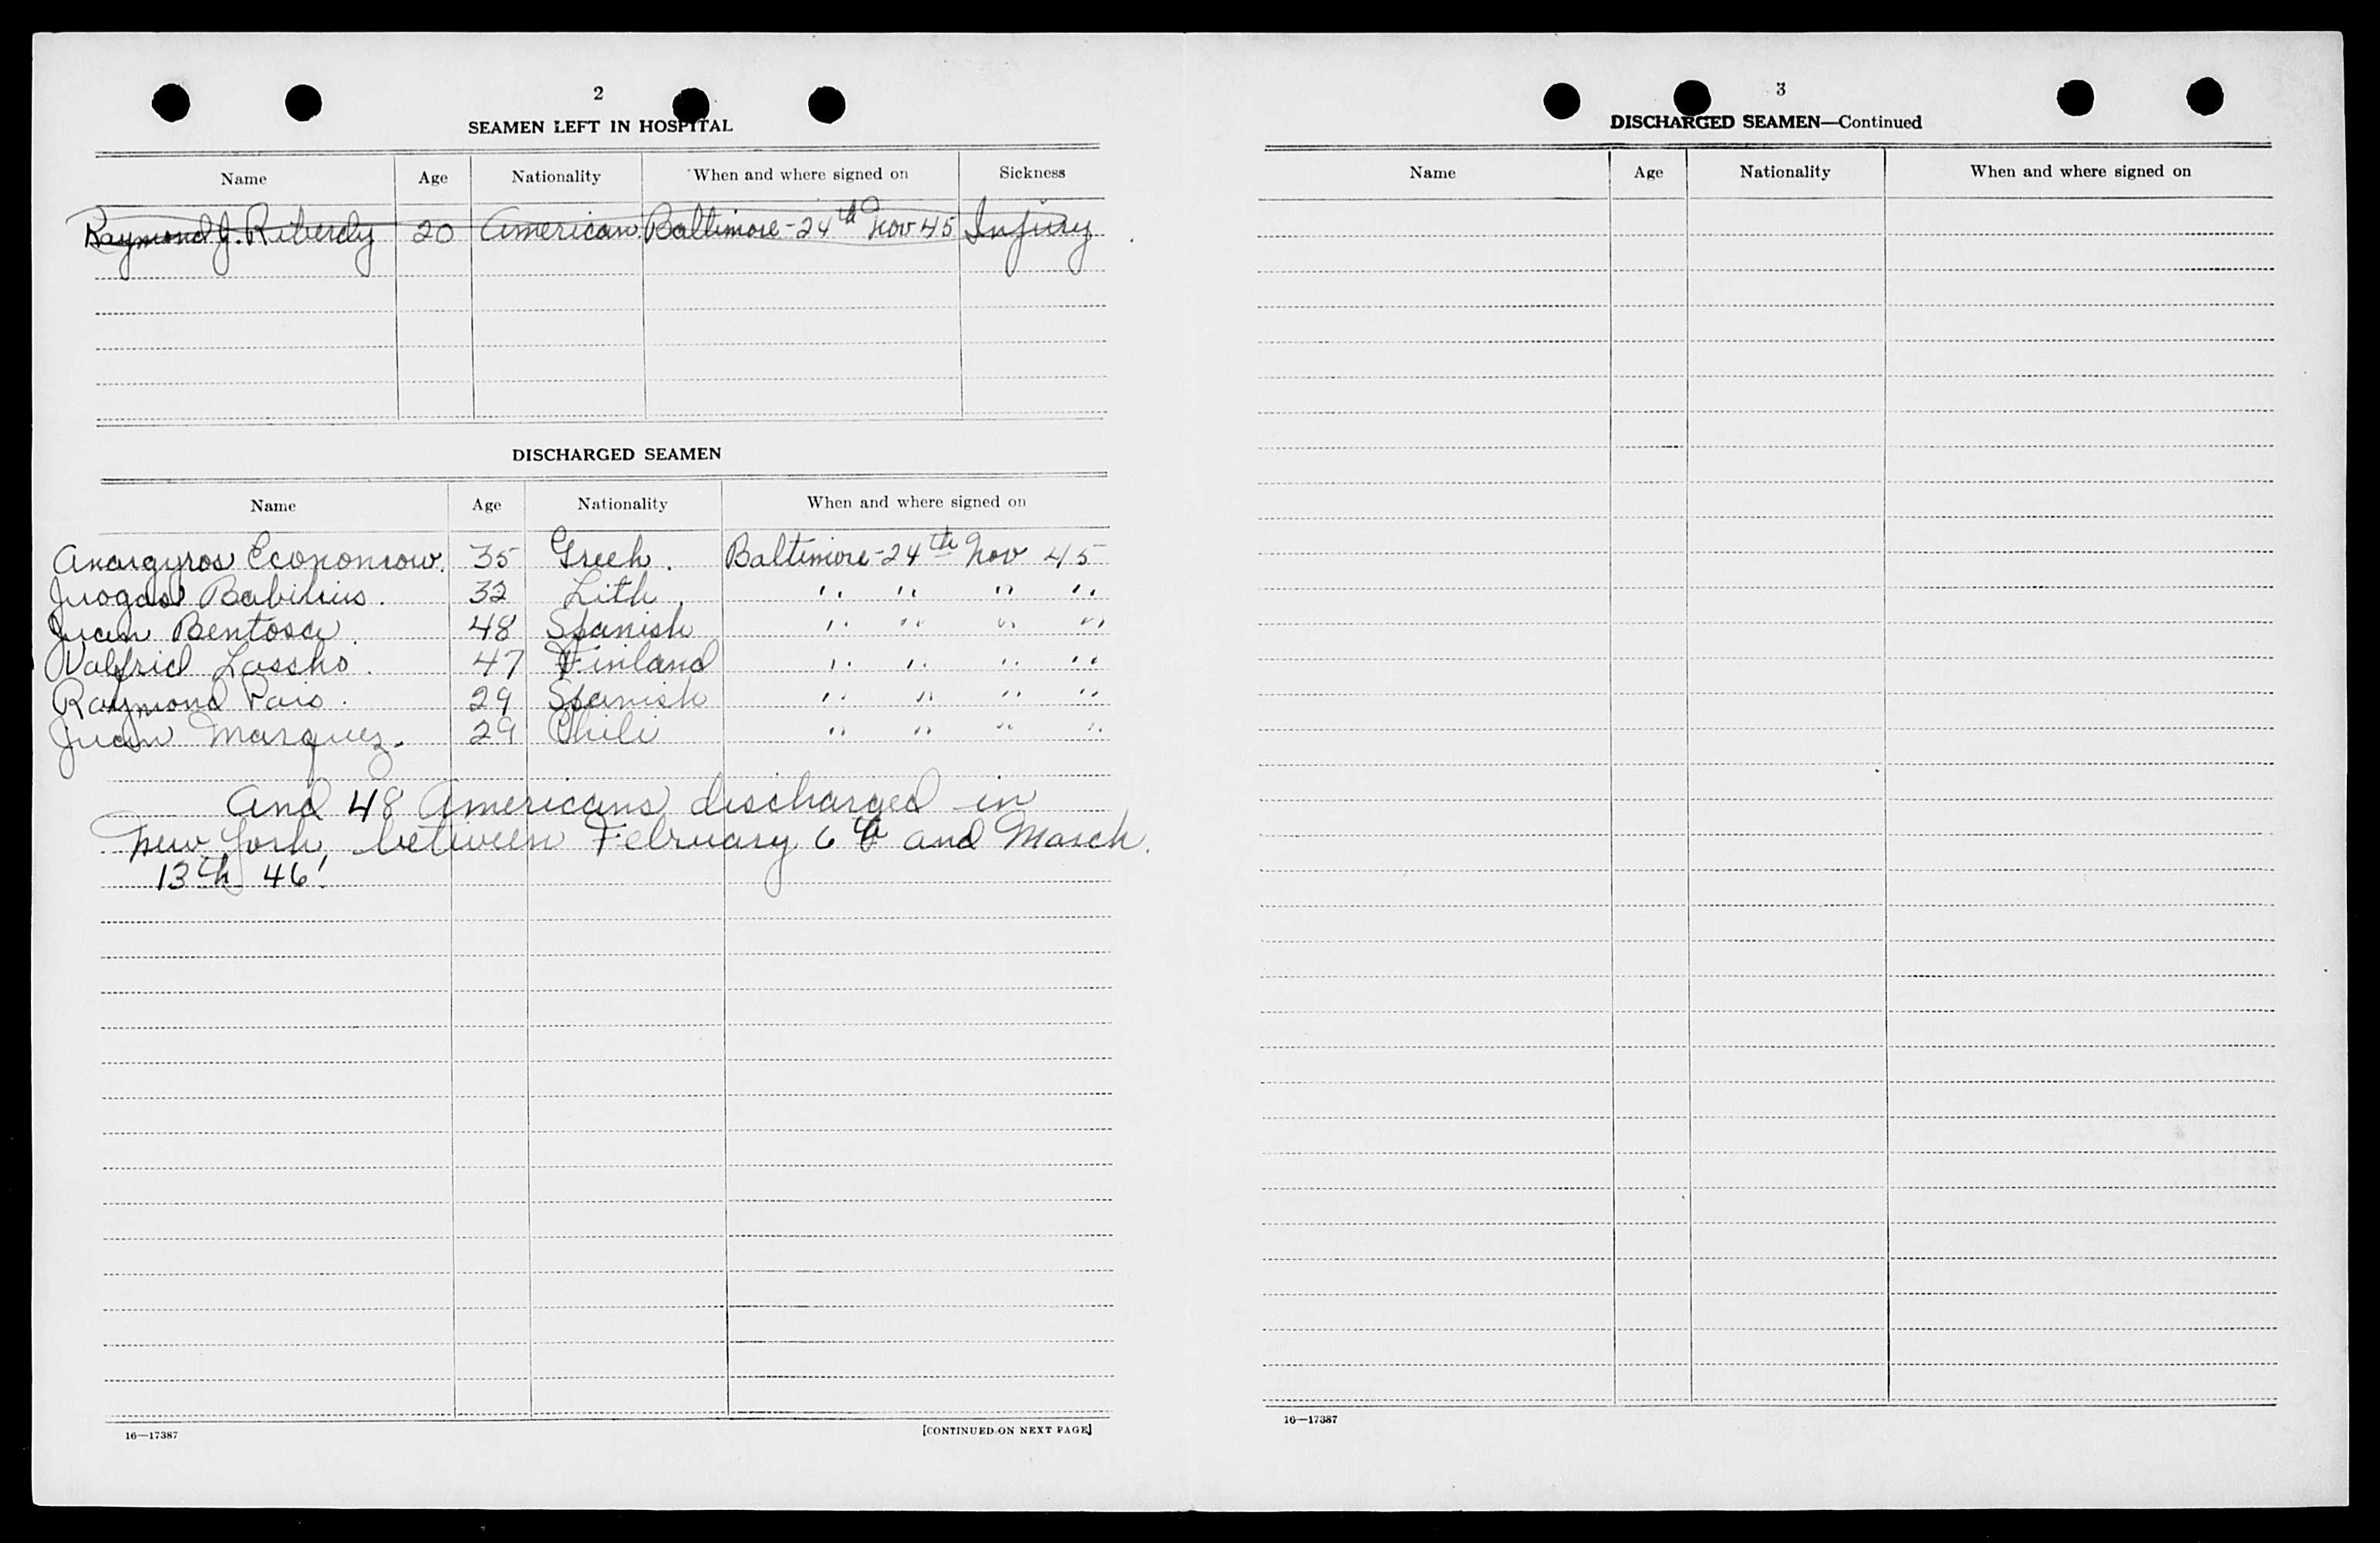 2
SEAMEN LEFT IN HOSPITAL
Name Age Nationality When and where signed on Sickness
Raymond J. Riberdy 20 American Baltimore - 24th Nov 45 Injury
DISCHARGED SEAMEN
Name Age Nationality When and where signed on
Anargyros Economow. 35 Greek. Baltimore - 24th Nov 45
Juogas Babilius. 32 Lith. " " " "
Juan Bentosa. 48 Spanish " " " "
Valfrid Lassko. 47 Finland " " " "
Raymond Pais. 29 Spanish " " " "
Juan Marquez. 29 Chili " " " "
And 48 Americans discharged in
New York between February 6th and March
13th 46'.
16—17387 [CONTINUED ON NEXT PAGE]
3
DISCHARGED SEAMEN—Continued
Name Age Nationality When and where signed on
16—17387